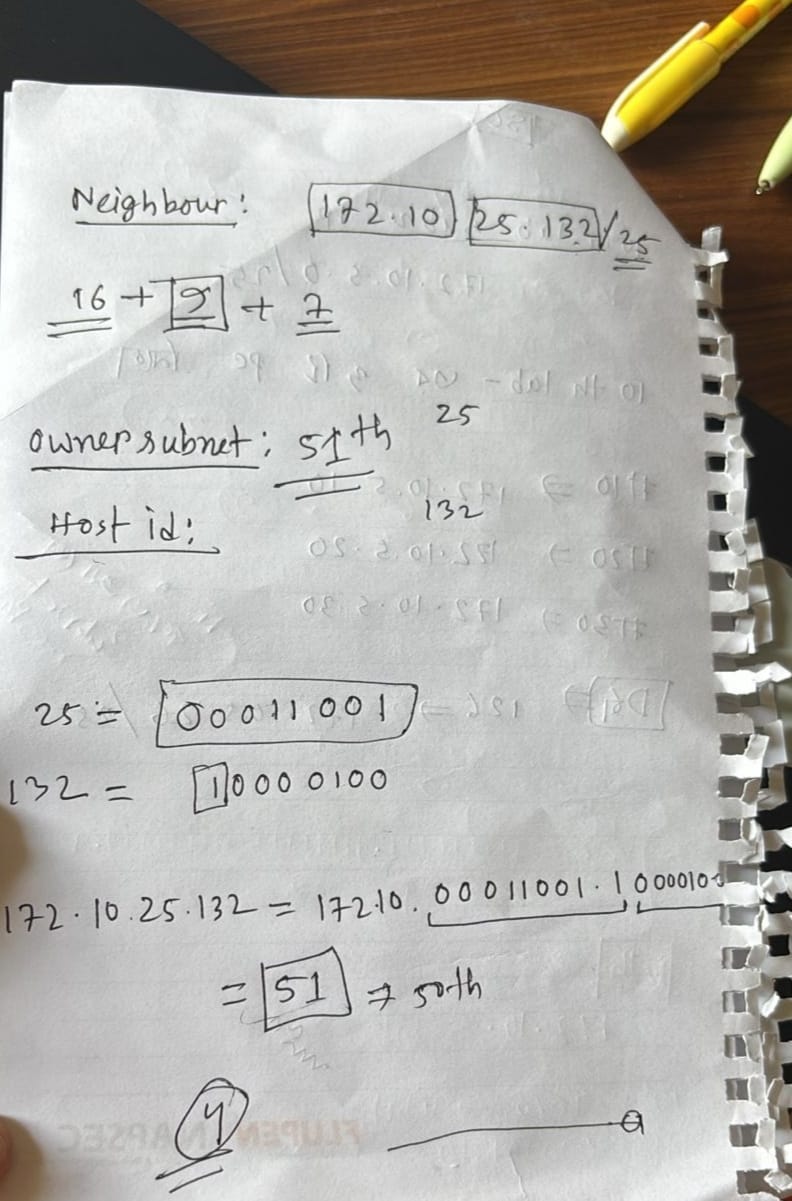 Neighbour: 172.10 25.132/25
16 + 9 + 7
owner subnet: 51th 25
Host id: 132
25 = 00011001
132 = 10000100
172.10.25.132 = 172.10.00011001.1 0000100
= 51 → 50th
4